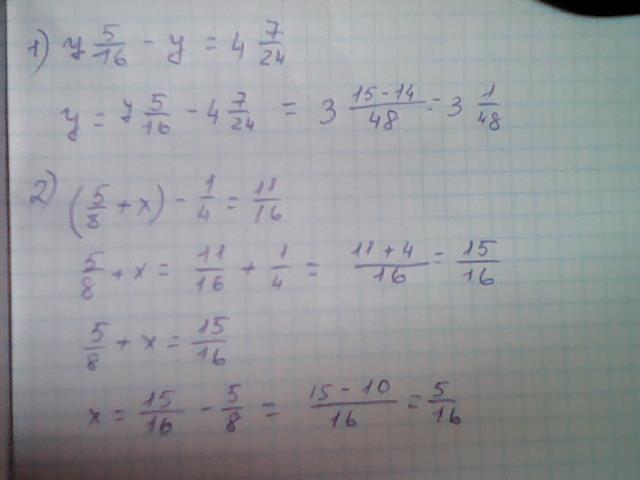 1) 7 5/16 - y = 4 7/24
y = 7 5/16 - 4 7/24 = 3 (15-14)/48 = 3 1/48
2) (5/8 + x) - 1/4 = 11/16
5/8 + x = 11/16 + 1/4 = (11+4)/16 = 15/16
5/8 + x = 15/16
x = 15/16 - 5/8 = (15-10)/16 = 5/16